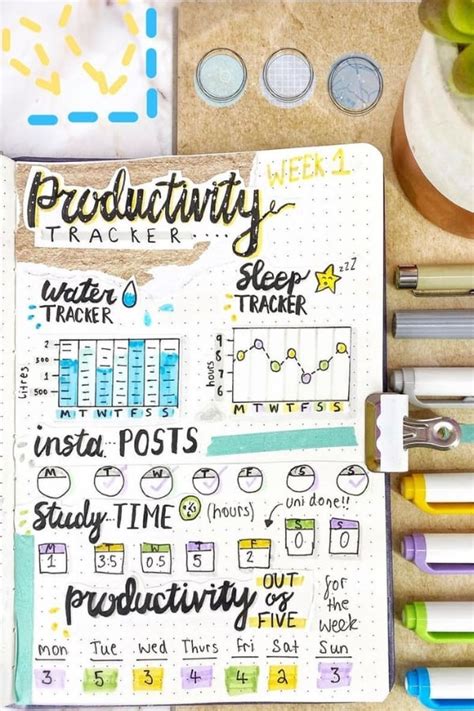 WEEK 1
Productivity
TRACKER
Water
TRACKER
Sleep
TRACKER
zzZ
litres
2
1
500
M T W T F S S
hours
9
8
7
6
M T W T F S S
insta. POSTS
M T W T F S S
Study TIME (hours)
uni done!!
M T W T F S S
1 3.5 0.5 5 2 0 0
productivity OUT of FIVE for the week
mon Tue Wed Thurs Fri Sat Sun
3 5 3 4 4 2 3